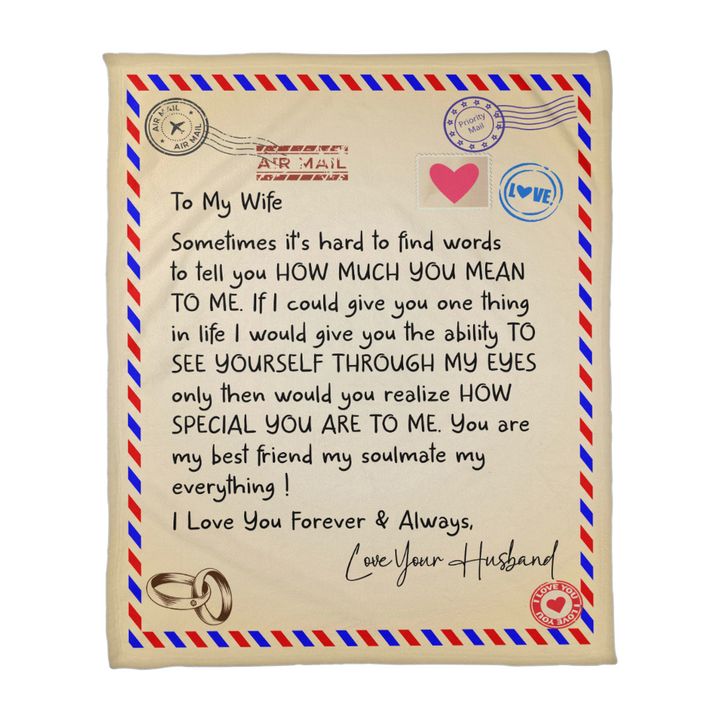 AIR MAIL
AIR MAIL
Priority
Mail
AIR MAIL
LVE!
To My Wife
Sometimes it's hard to find words
to tell you HOW MUCH YOU MEAN
TO ME. If I could give you one thing
in life I would give you the ability TO
SEE YOURSELF THROUGH MY EYES
only then would you realize HOW
SPECIAL YOU ARE TO ME. You are
my best friend my soulmate my
everything !
I Love You Forever & Always,
Love Your Husband
I LOVE YOU
I LOVE YOU